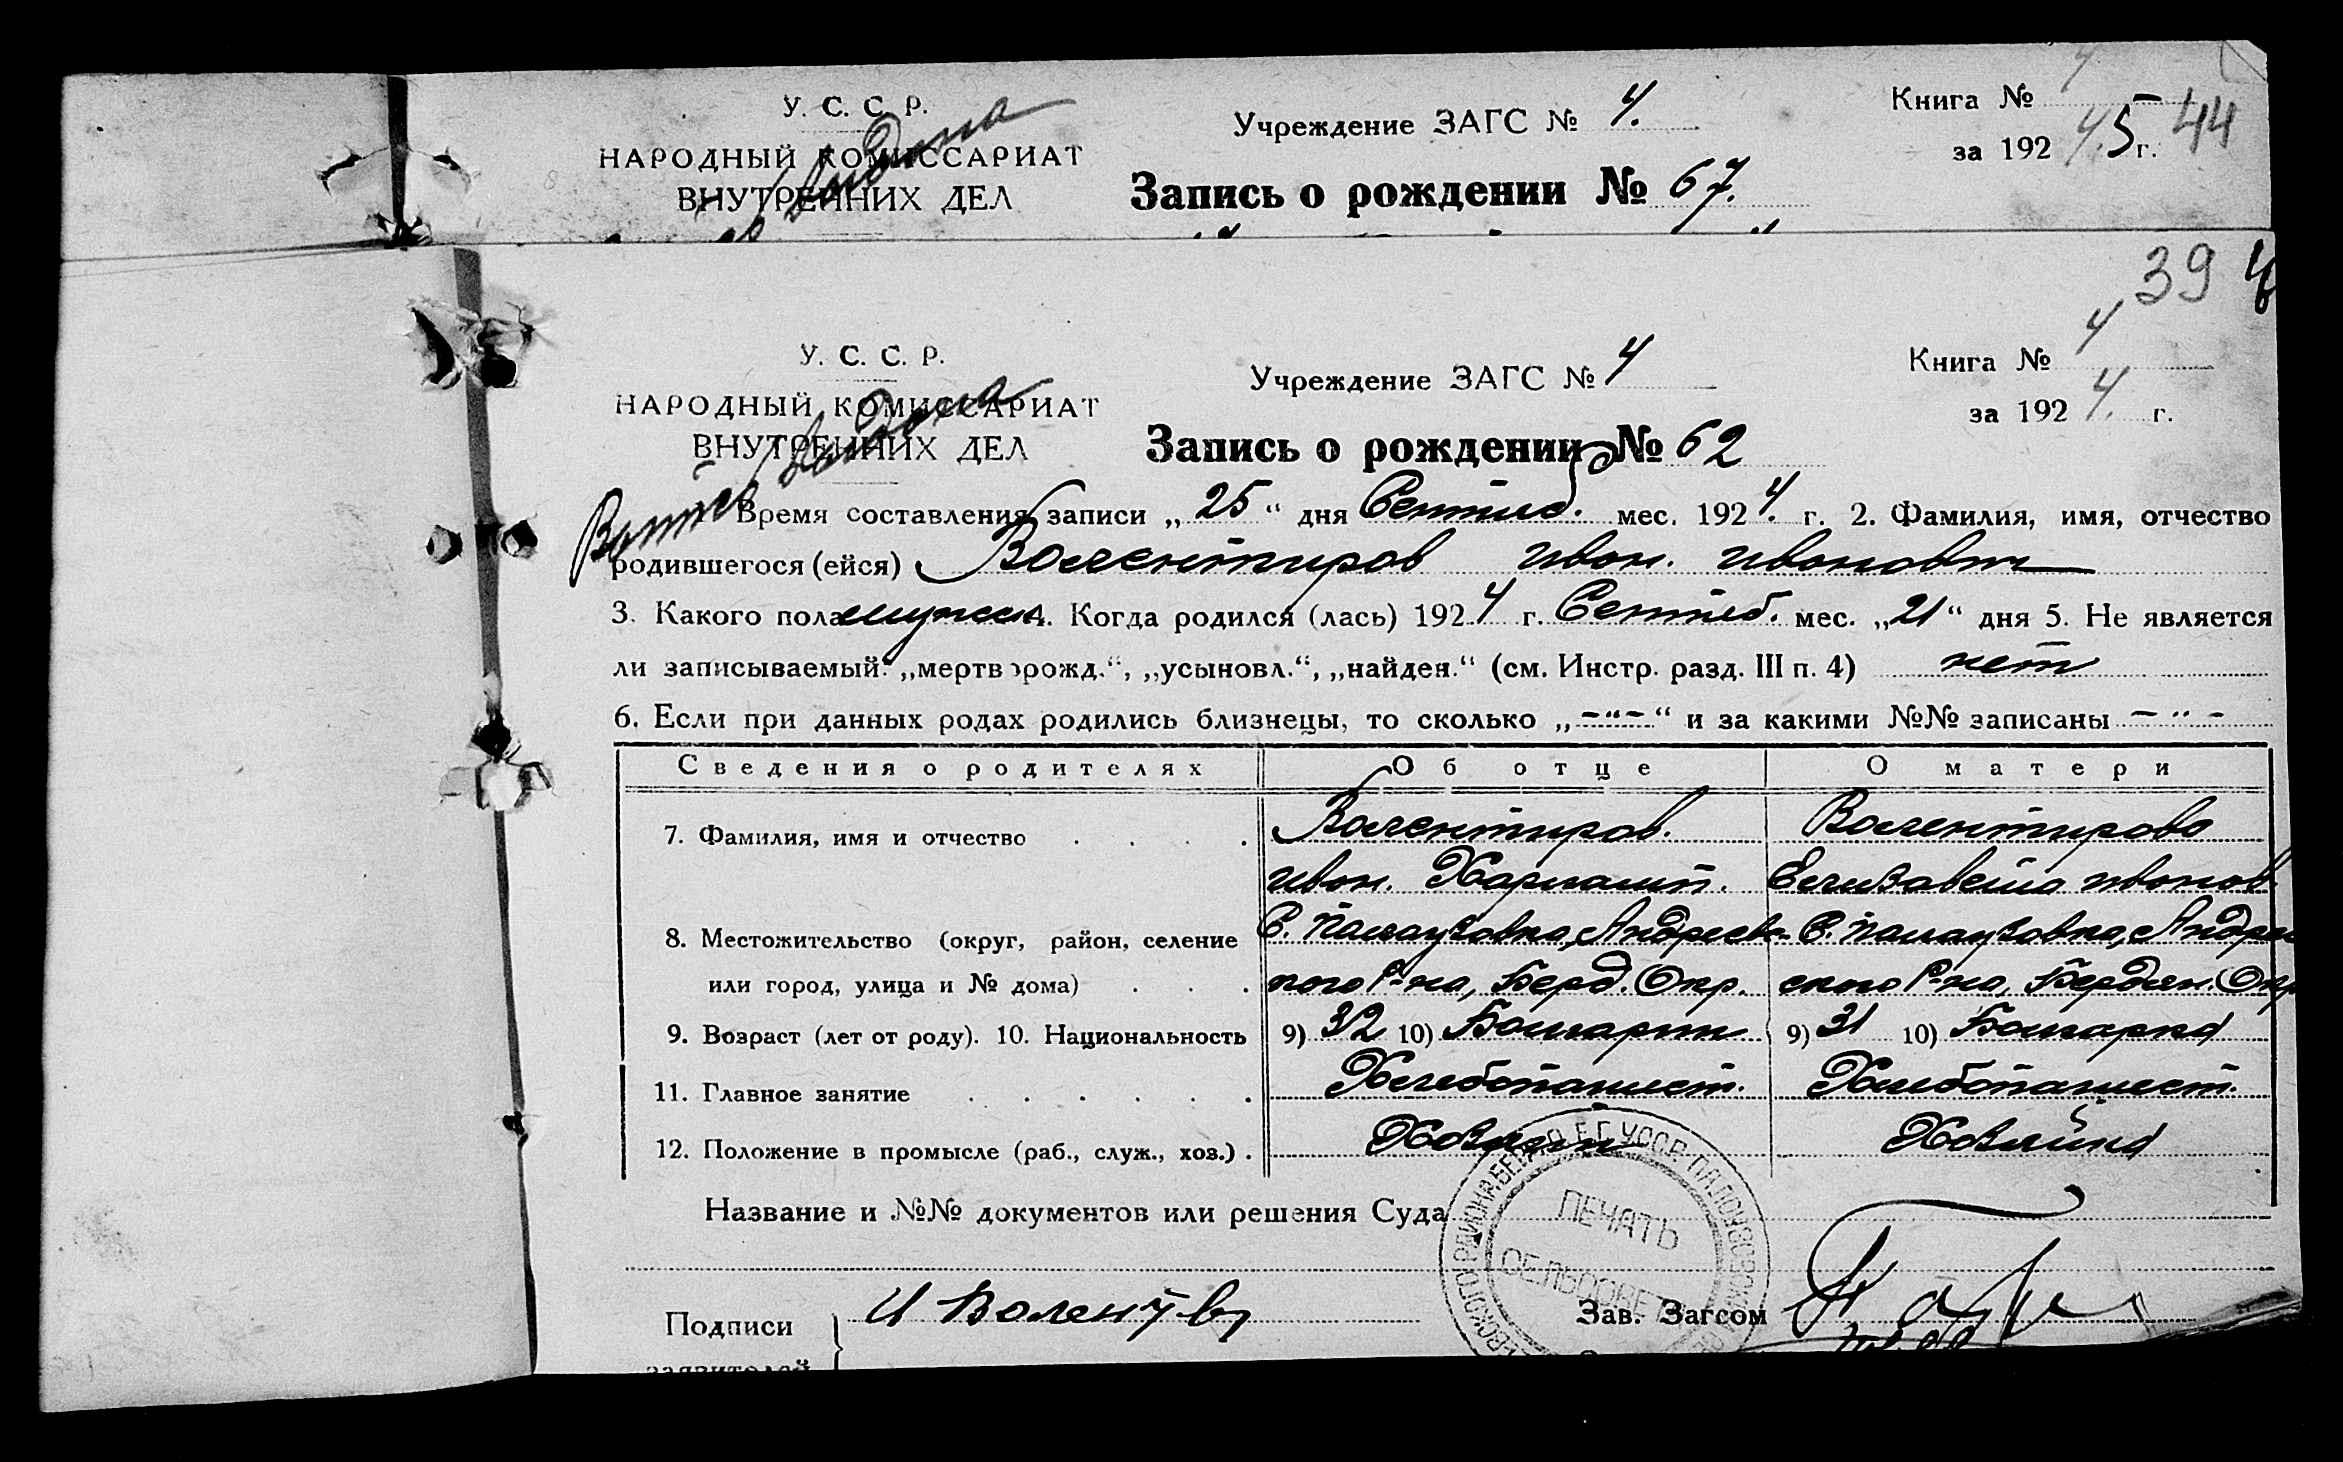 У. С. С. Р.
НАРОДНЫЙ КОМИССАРИАТ
ВНУТРЕННИХ ДЕЛ
Учреждение ЗАГС № 4.
Запись о рождении № 67.
Книга № 4
за 192 4.5 г. 44
39
У. С. С. Р.
НАРОДНЫЙ КОМИССАРИАТ
ВНУТРЕННИХ ДЕЛ
Учреждение ЗАГС № 4
Запись о рождении № 62
Книга № 4
за 192 4. г.
Время составления записи „ 25 “ дня Сентяб. мес. 192 4. г. 2. Фамилия, имя, отчество
родившегося (ейся) Валентиров Иван. Иванович
3. Какого пола мужск. 4. Когда родился (лась) 192 4 г. Сентяб. мес. „ 21 “ дня 5. Не является
ли записываемый: „мертворожд.“, „усыновл.“, „найден.“ (см. Инстр. разд. III п. 4) нет
6. Если при данных родах родились близнецы, то сколько „ -“- “ и за какими №№ записаны - “ -
Сведения о родителях Об отце О матери
7. Фамилия, имя и отчество . . . . Валентиров. Валентирова
Иван. Харламп. Елизавета Иванов.
8. Местожительство (округ, район, селение С. Палаузовка, Андреев- С. Палаузовка, Андреев
или город, улица и № дома) . . . кого Р-на, Берд. Окр. ского Р-на, Бердян. Окр
9. Возраст (лет от роду). 10. Национальность 9) 32 10) Болгарин 9) 31 10) Болгарка
11. Главное занятие . . . . . . Хлебопашест. Хлебопашест.
12. Положение в промысле (раб., служ., хоз.) . Хозяин Хозяйка
Название и №№ документов или решения Суда
ПЕЧАТЬ
СЕЛЬСОВЕТА
Подписи И Валентѣв Зав. Загсом
заявителей